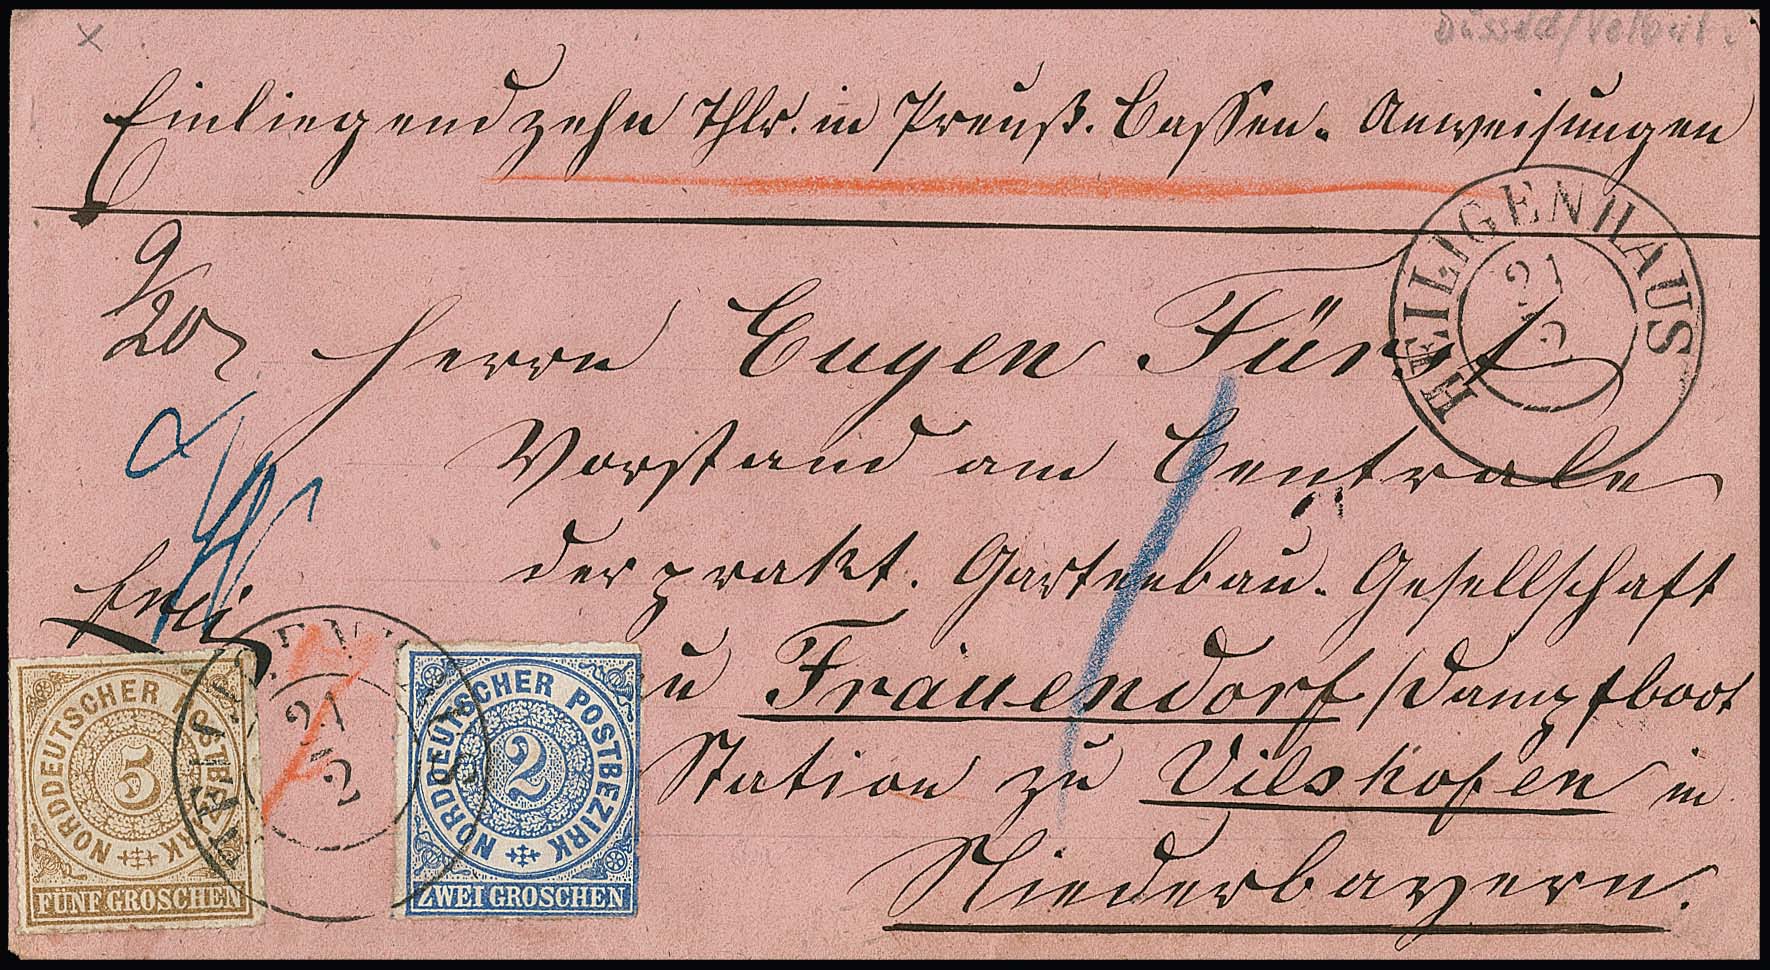 Einliegend zehn Thlr. in Preuß. Cassen-Anweisungen
HEILIGENHAUS
21
5
9/20
Herrn Eugen Fürst
Vorstand am Centrale
der prakt. Gartenbau-Gesellschaft
zu Frauendorf / Dampfboot
Station zu Vilshofen in
Niederbayern.
frei
21
5
NORDDEUTSCHER POSTBEZIRK
5
FÜNF GROSCHEN
NORDDEUTSCHER POSTBEZIRK
2
ZWEI GROSCHEN